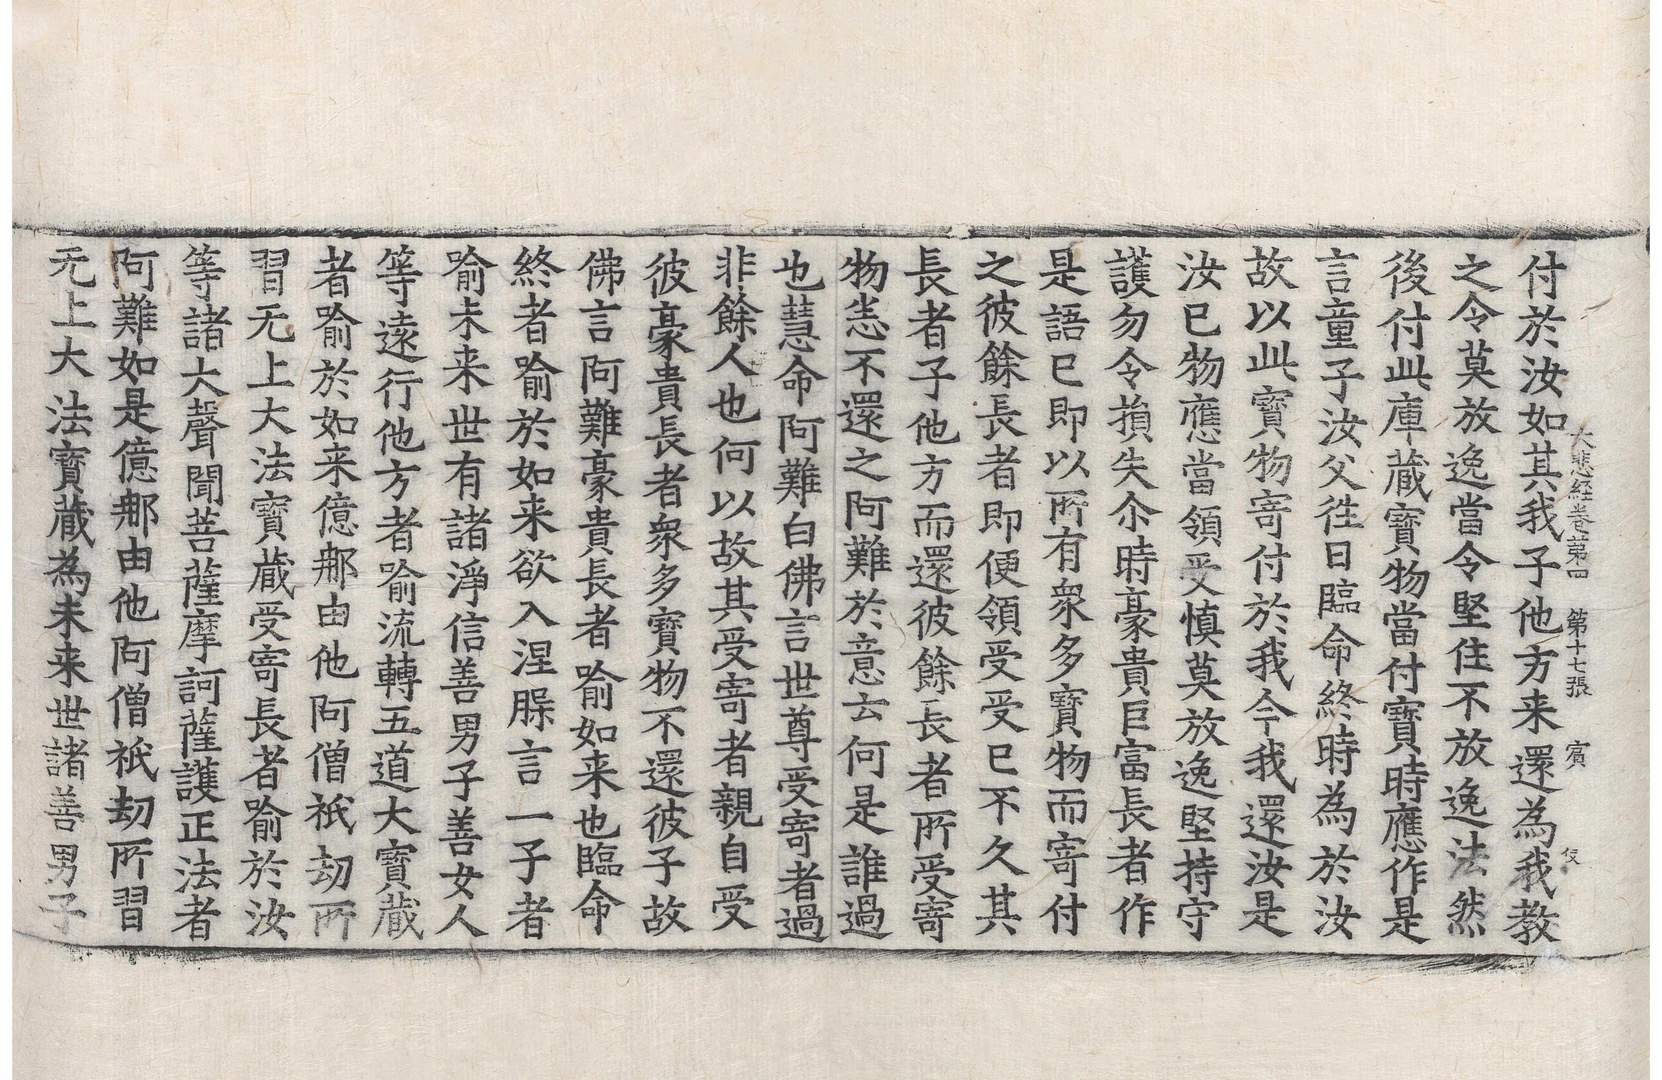 大悲経卷第四 第十七張 賓
付於汝如其我子他方来還為我教
之令莫放逸當令堅住不放逸法然
後付此庫蔵寶物當付寶時應作是
言童子汝父徃日臨命終時為於汝
故以此寶物寄付於我今我還汝是
汝已物應當領受慎莫放逸堅持守
護勿令損失尒時豪貴巨富長者作
是語已即以所有衆多寶物而寄付
之彼餘長者即便領受受已不久其
長者子他方而還彼餘長者所受寄
物恙不還之阿難於意去何是誰過
也慧命阿難白佛言世尊受寄者過
非餘人也何以故其受寄者親自受
彼豪貴長者衆多寶物不還彼子故
佛言阿難豪貴長者喻如来也臨命
終者喻於如来欲入涅腺言一子者
喻未来世有諸淨信善男子善女人
等遠行他方者喻流轉五道大寶蔵
者喻於如来億那由他阿僧祇劫所
習无上大法寶蔵受寄長者喻於汝
等諸大聲聞菩薩摩訶薩護正法者
阿難如是億那由他阿僧祇劫所習
无上大法寶蔵為未来世諸善男子